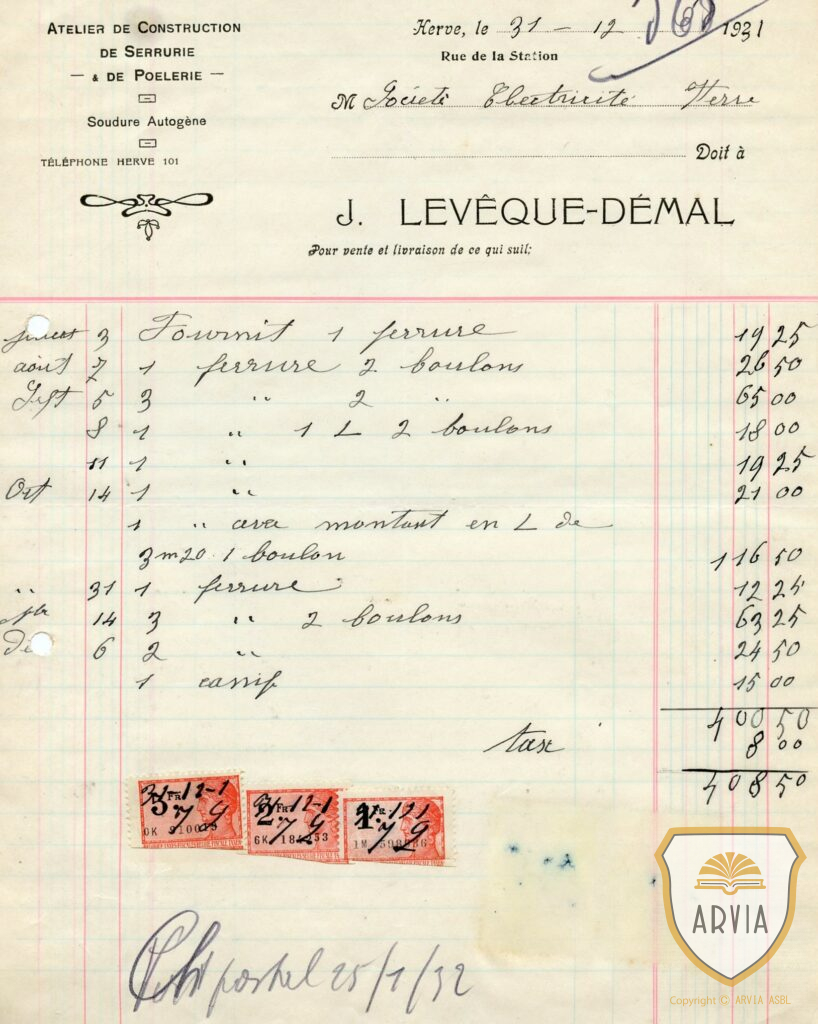 ATELIER DE CONSTRUCTION
DE SERRURIE
— & DE POELERIE —
Soudure Autogène
TÉLÉPHONE HERVE 101
Herve, le 31 - 12 1931
Rue de la Station
M Société Electricité Herve
Doit à
J. LEVÊQUE-DÉMAL
Pour vente et livraison de ce qui suit:
3 Fournit 1 ferrure 19 25
août 7 1 ferrure 2 boulons 26 50
Sept 5 3 " 2 " 65 00
8 1 " 1 L 2 boulons 18 00
11 1 " 19 25
Oct 14 1 " 21 00
1 " avec montant en L de
3m20 1 boulon 116 50
" 31 1 ferrure 12 25
14 3 " 2 boulons 63 25
6 2 " 24 50
1 canif 15 00
400 50
taxe 8 00
408 50
31-12-1
FR
J L
31-12-1
2 FR
J L
GK
31-12 1
1 FR
J L
postal 25/1/32
ARVIA
Copyright © ARVIA ASBL